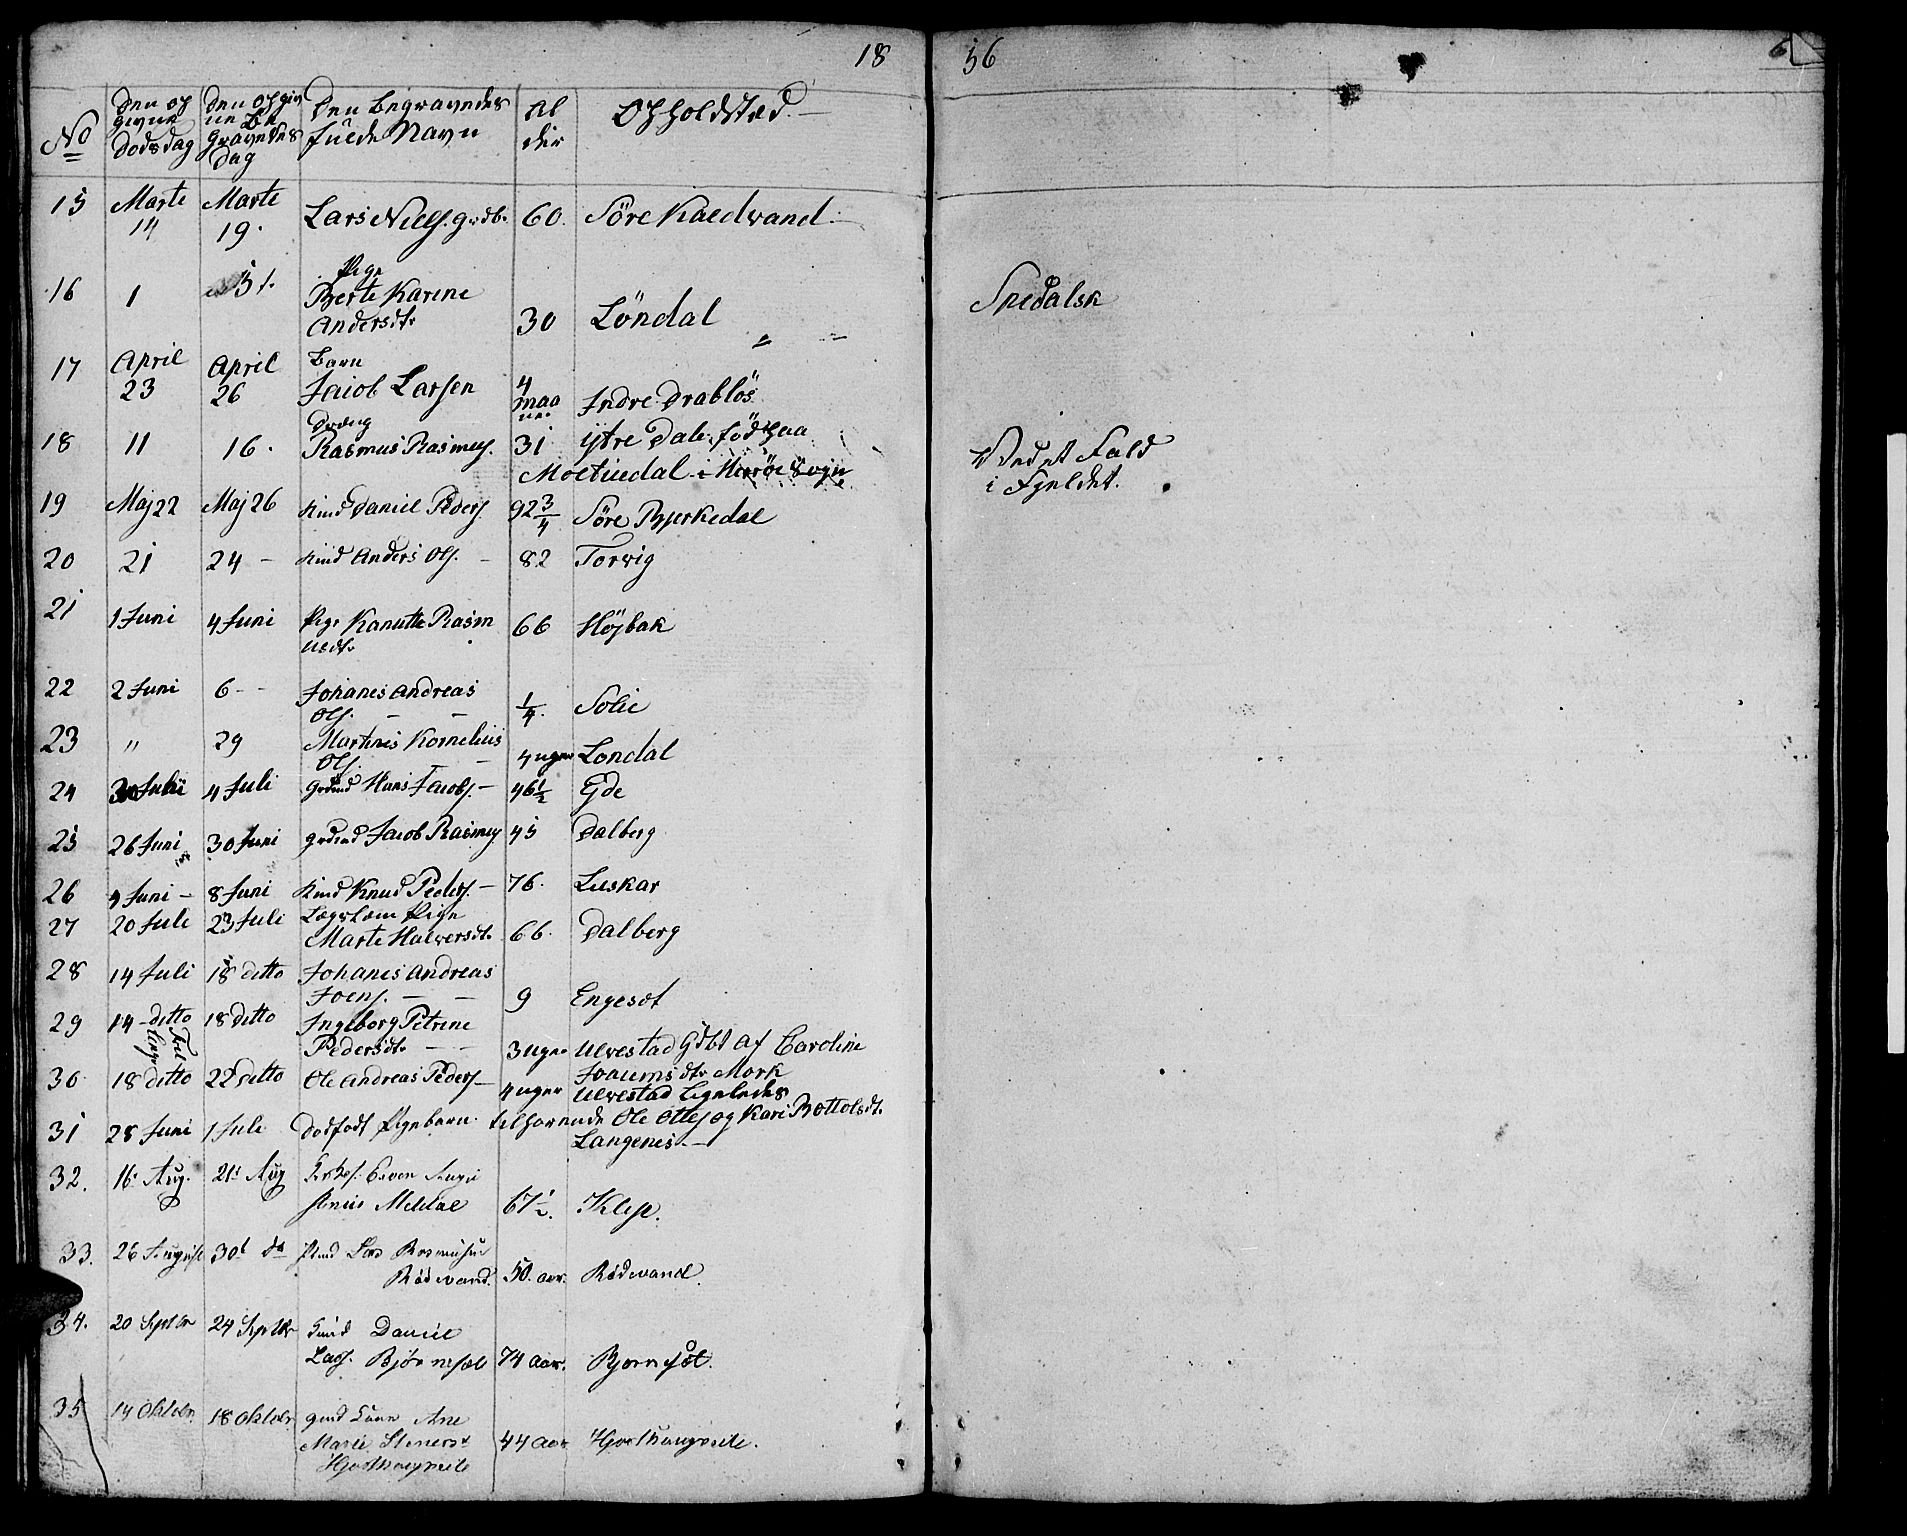 18 56 6
No
Den op givne Dödsdag Den opgiv ne Be gravedes Dag Den begravedes fulde Navn Al der Opholdsted. —
15 Marte 14 Marte 19. Lars Niels. grdb. 60. Söre Kaldvand.
16 1 31. Pige Berte Karine Andersdtr 30 Löndal Spedalsk
17 April 23 April 26 Barn Jacob Larsen 4 maa ner Indre Drablös
18 11 16. Dreng Rasmus Rasmus. 31 ijtre Dale. föd paa
Moltuedal i Sogn. Ved et Fald
i Fjeldet.
19 Maj 22 Maj 26 Kind Daniel Peders. 92 3/4 Söre Bjerkedal
20 21 24 — Kind Anders Ols. — 82 Torvig
21 1 Juni 4 Juni Pige Kanutte Rasm usdtr 66 Höjbak
22 2 Juni 6 - - Johanes Andreas Ols. — — 1/4. Solie
23 " 29 Martines Kornelius Ols. — — 4 uger Londal
24 Juli 4 Juli Hans Jacobs. — 46 1/2 Eide
25 26 Juni 30 Juni Jacob Rasmus. 45 Dalberg
26 4 Juni — 8 Juni Kind Knud Peders. — 76. Leskar
27 20 Juli 23 Juli Lægslem Pige
Marte Halversdtr 66. Dalberg
28 14 Juli 18 ditto Johanes Andreas
Joens. — — 9 Engeset
29 14 - ditto 18 ditto Ingeborg Petrine
Pedersdtr — — 3 uger Ulvestad födt af Caroline
Joaumsdtr Mork
30 18 ditto 22 ditto Ole Andreas Peders — 4 uger Ulvestad ligeledes
31 28 Juni 1 Juli Dödfödt Pigebarn tilhörende Ole Ottes og Kari Bottolsdt.
Langenes —
32. 16 Aug. 21 Aug Meldal 67 1/2. Kleps.
33. 26 August 30t do Lars Rasmusen
Rödevand. 50. aar. Rödevand.
34. 20 Septbr 24 Septbr Daniel
Lars. Bjørneset 74 aar. Bjorneset.
35 14 Oktobr. 18 Oktobr. Ane
Marie Steners. 44 aar Hjorthaugneile.
Hjorthaugneile